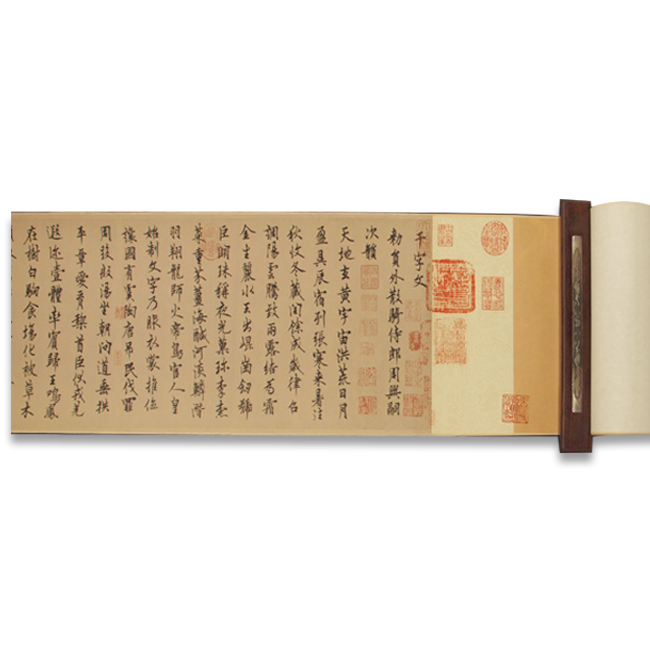 千字文
勅員外散騎侍郎周興嗣
次韻
天地玄黃宇宙洪荒日月
盈昃辰宿列張寒來暑往
秋收冬藏閏餘成歲律呂
調陽雲騰致雨露結為霜
金生麗水玉出崐崗劒號
巨闕珠稱夜光菓珍李柰
菜重芥薑海醎河淡鱗潛
羽翔龍師火帝鳥官人皇
始制文字乃服衣裳推位
讓國有虞陶唐弔民伐罪
周發殷湯坐朝問道垂拱
平章愛育黎首臣伏戎羌
遐迩壹體率賓歸王鳴鳳
在樹白駒食場化被草木